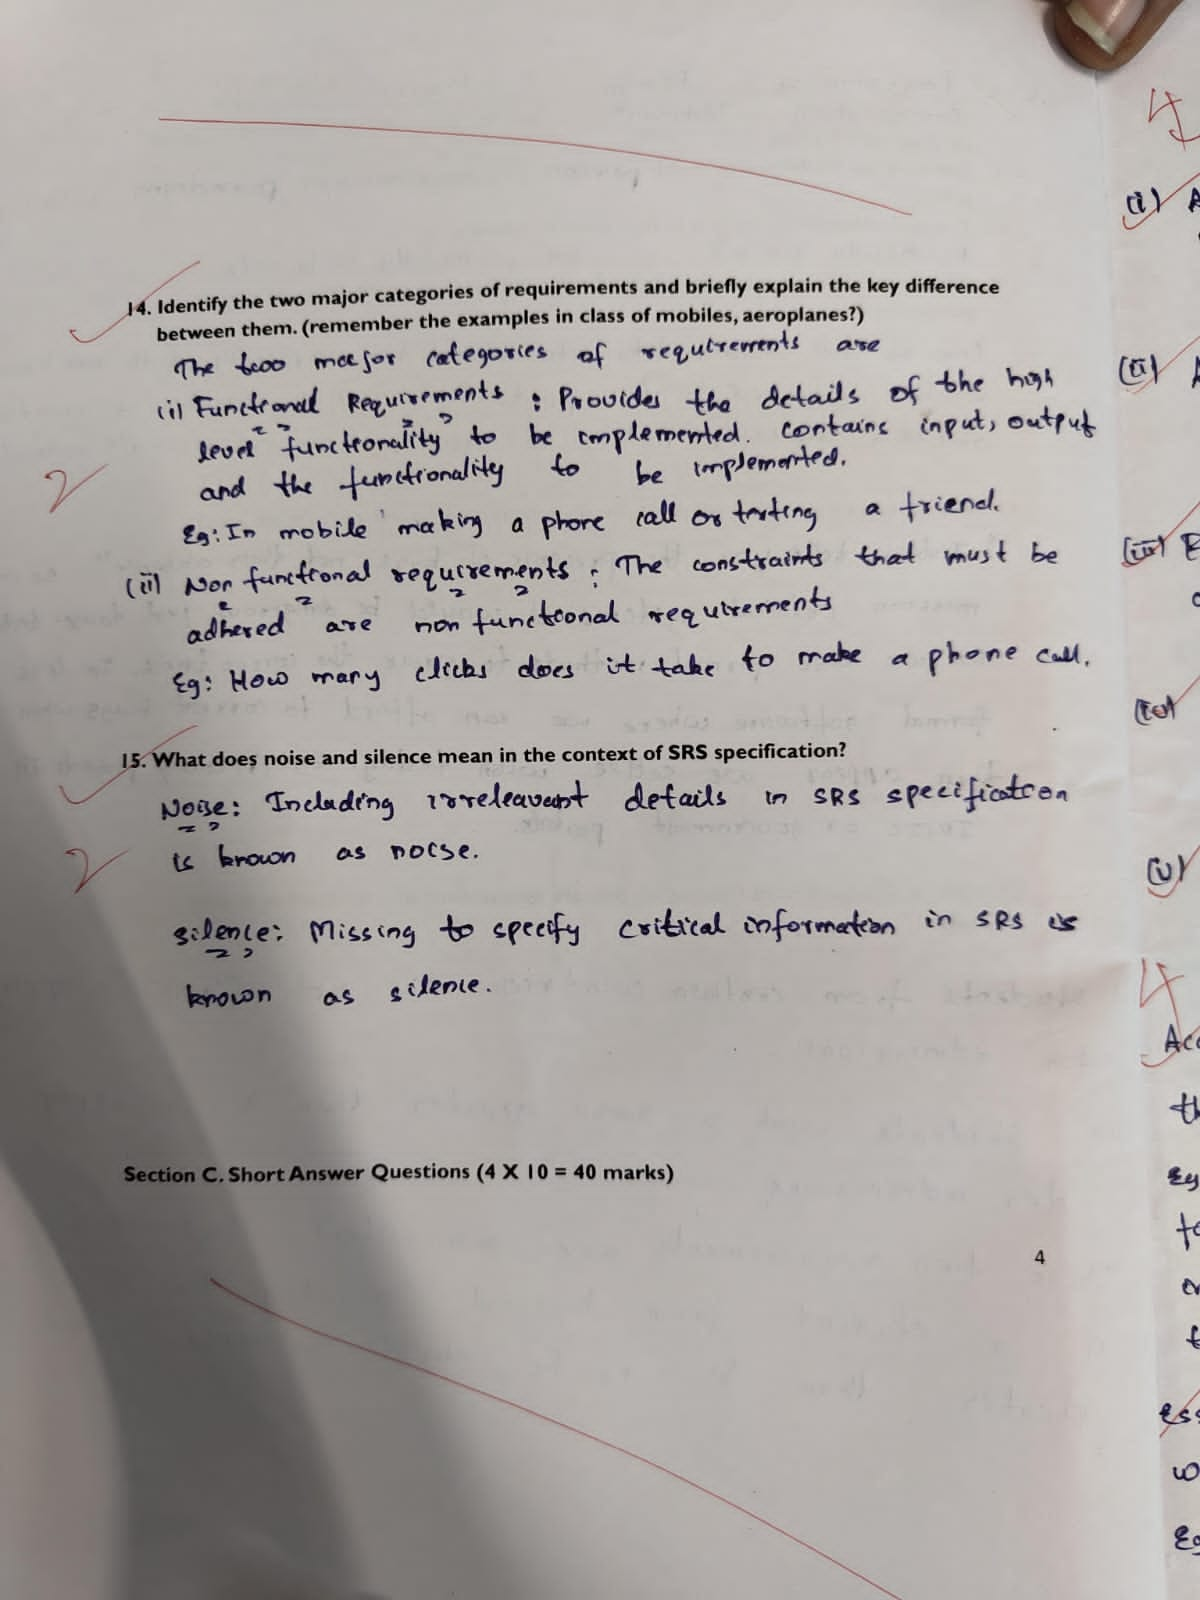 14. Identify the two major categories of requirements and briefly explain the key difference
between them. (remember the examples in class of mobiles, aeroplanes?)
The two major categories of requirements are
(i) Functional Requirements : Provides the details of the high
level functionality to be implemented. contains input, output
and the functionality to be implemented.
Eg: In mobile making a phone call or texting a friend.
(ii) Non functional requirements : The constraints that must be
adhered are non functional requirements
Eg: How many clicks does it take to make a phone call.
2
15. What does noise and silence mean in the context of SRS specification?
Noise: Including irreleavant details in SRS specification
is known as noise.
2
silence: Missing to specify critical information in SRS is
known as silence.
Section C. Short Answer Questions (4 X 10 = 40 marks)
4
4
(i) A
(ii) A
(iii) E
(iv)
(v)
4
Acc
th
Eg
to
t
Ess
w
Eg